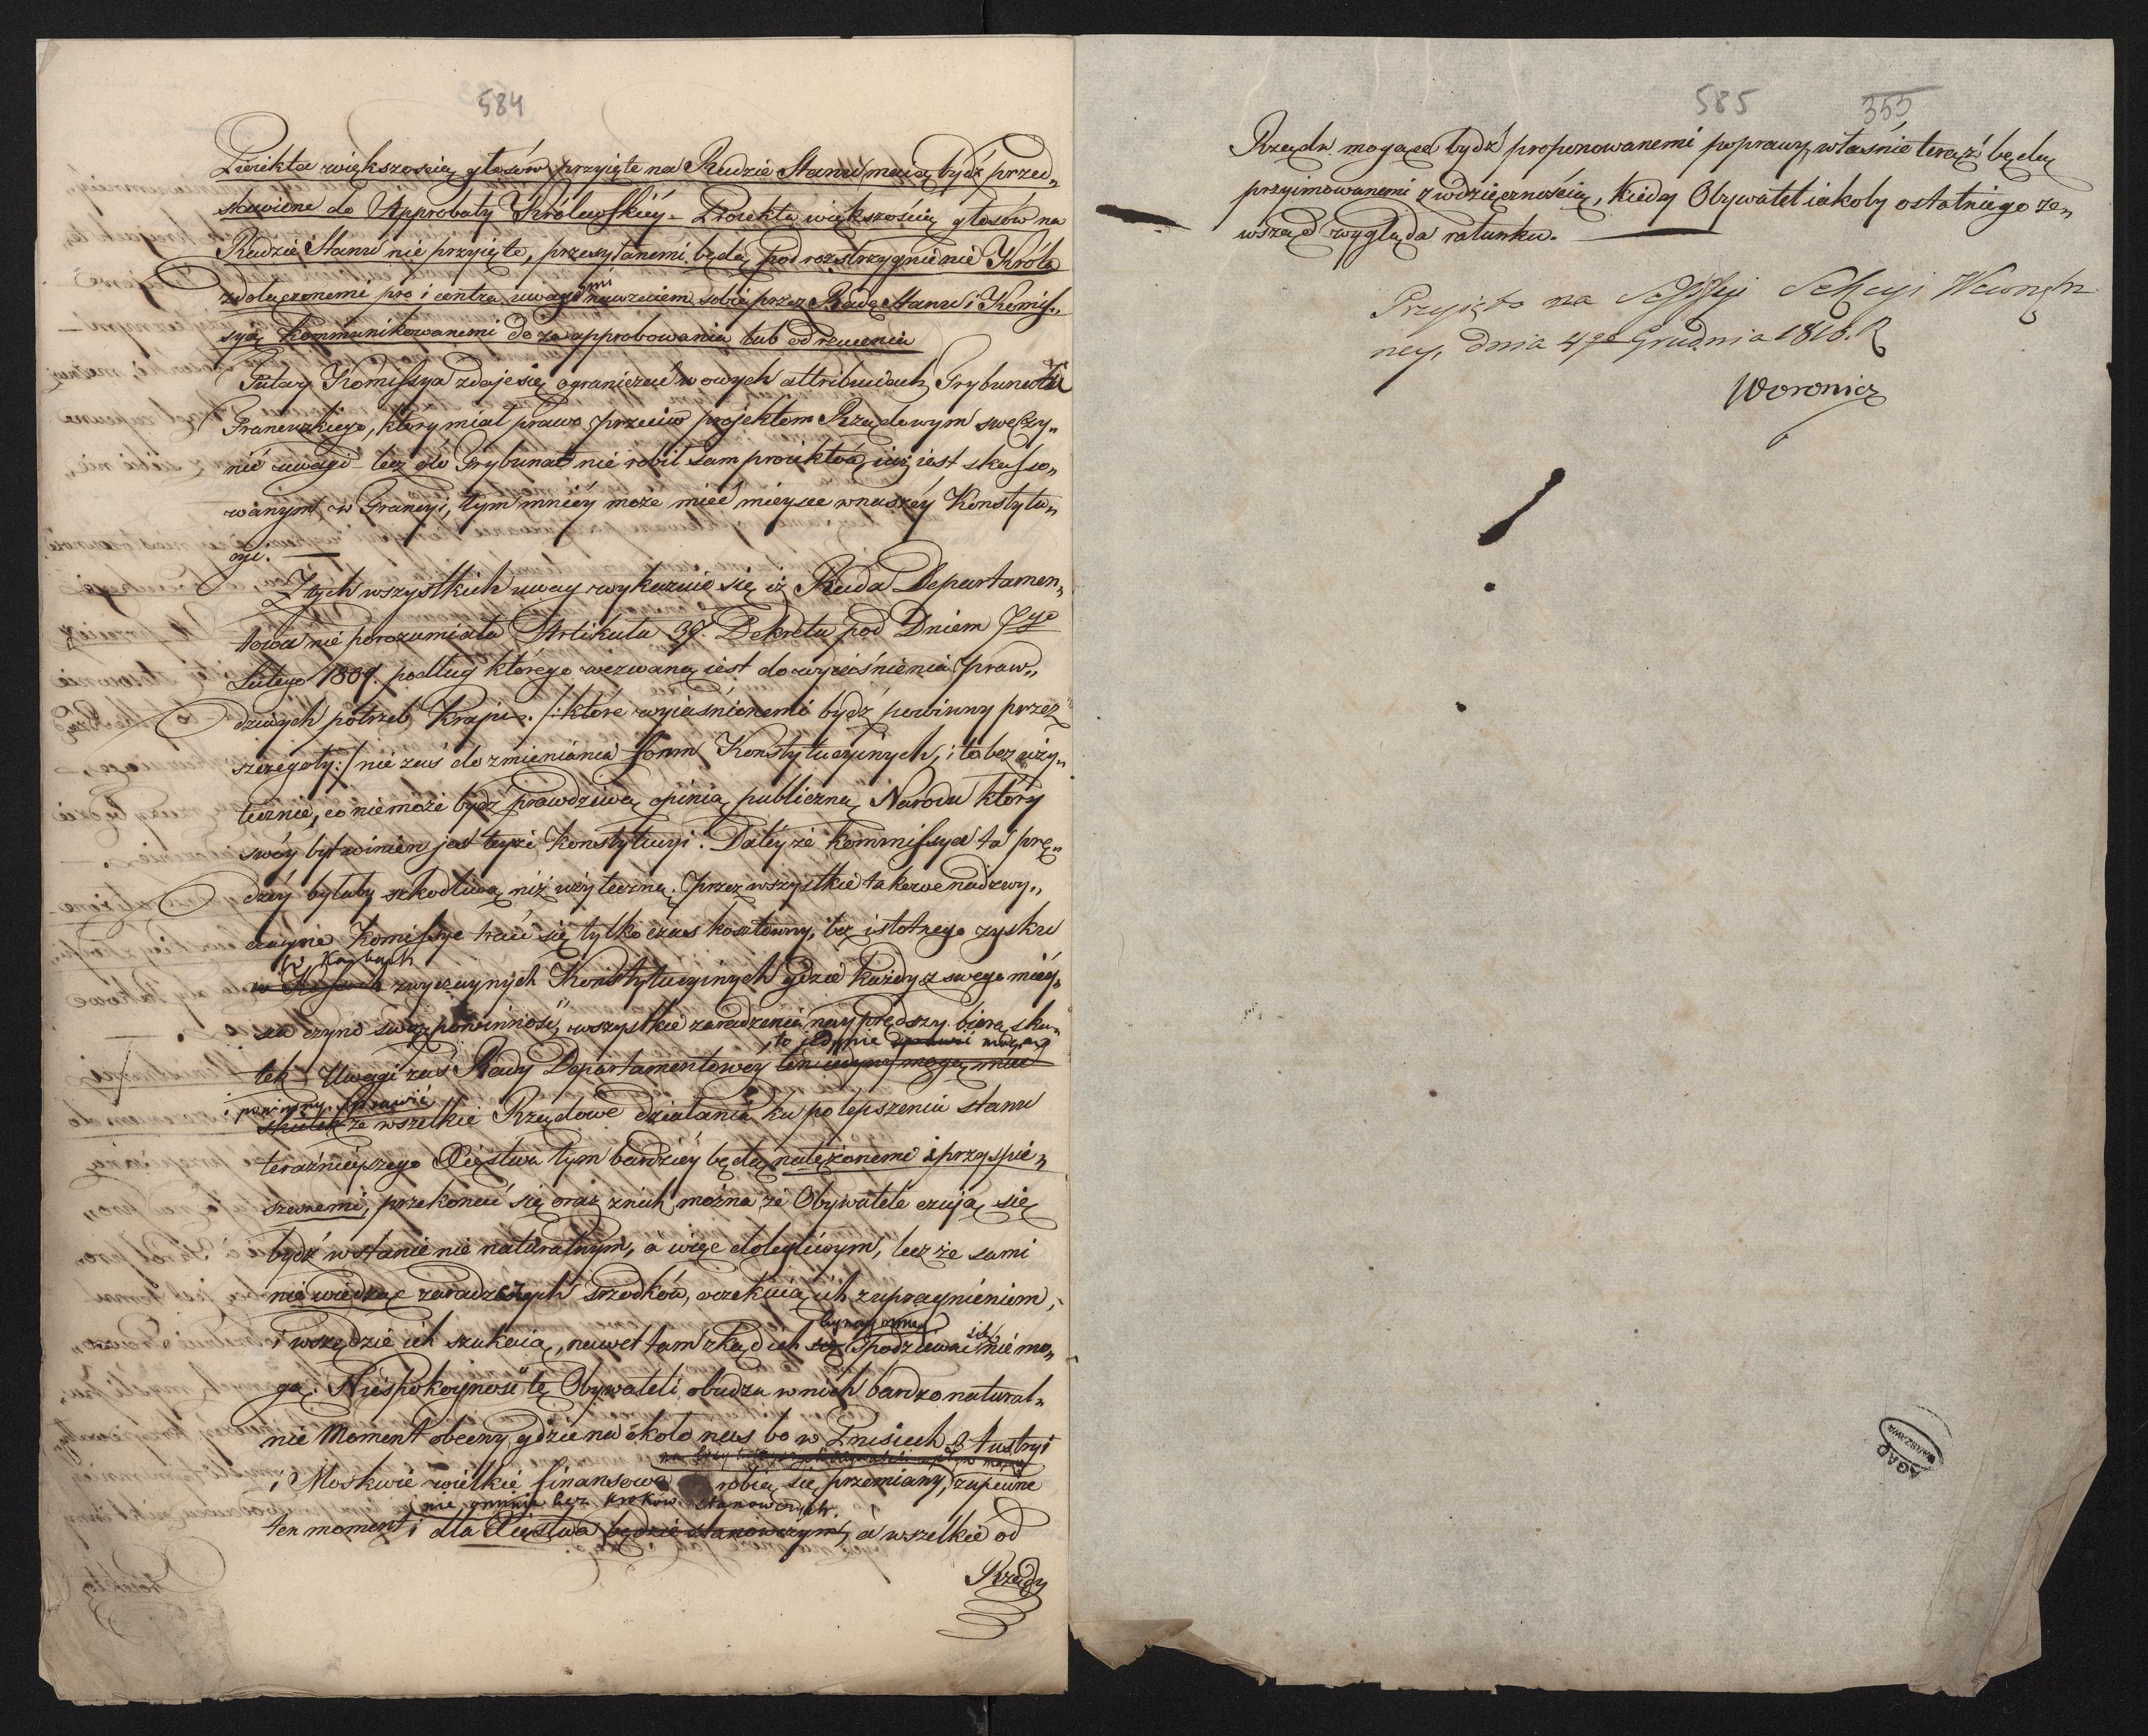 584
Proiekta większością głosów przyięte na Radzie Stanu maią bydź przed„
stawione do Approbaty Królewskiéy – Proiekta większością głosów na
Radzie Stanu nie przyięte, przesyłanemi będą pod rozstrzygnienie Króla
z dołączonemi pro i contra uwagami nawzaiem sobie przez Radę Stanu i Komis„
syą kommunikowanemi do zaapprobowania lub odrzucenia
Tutay Komissya zdaje się ograniczać w owych attribuciach Trybunatu
Francuzkiego, który miał prawo przeciw projektom Rządowym swe czy„
nić uwagi – lecz gdy Trybunat nie robił sam proiektów, iuż iest skasso„
wanym w Francyi, tym mniéy może mieć mieysce w naszéy Konstytu„
cyi. —
Z tych wszystkich uwag wykazuie się iż Rada Departamen„
towa nie porozumiała Artikułu 37. Dekretu pod Dniem 7go
Lutego 1809. podług którego wezwaną iest do wyiaśnienia praw„
dziwych potrzeb Kraju. /: które wyiaśnionemi bydź powinny przez
szczegóły :/ nie zaś do zmieniania form Konstytucyinych, i to bez uży„
tecznie, co nie może bydź prawdziwą opinią publiczną Narodu który
swóy byt winien jest teyże Konstytucyi. Daléy że kommissya ta prę„
dzéy byłaby szkodliwą niż użyteczną. Przez wszystkie takowe nadzwy„
czayne Komissye traci się tylko czas kosztowny, bez istotnego zysku
w Karbach
w zwyczaynych Konstytucyinych gdzie każdy z swego miéy„
sca czyni swą powinność, wszystkie zaradzenia nayprędszy biorą sku„
to jedynie sprawić mogą
tek – Uwagi zaś Rady Departamentowéy ten iedyny mogą mieć
i powinny sprawić
skutek że wszelkie Rządowe działania ku polepszeniu stanu
teraźnieyszego Xięstwa tym bardziéy będą natężonemi i przyspie„
szonemi, przekonać się oraz z nich można że Obywatele czują się
bydź w stanie nie naturalnym, a więc dolegliwym, lecz że sami
nie wiedząc zaradczych srzodków, oczekuią ich z upragnieniem,
i wszędzie ich szukaią, nawet tam zkąd ich
bynaymniey
się spodziewać się nie mo„
gą. Niespokoyność tę Obywateli obudza w nich bardzo natural„
nie Moment obecny gdzie na około nas bo w Prusiech, Austryi
i Moskwie wielkie finansowe robią się przemiany, zapewne
nie minie bez kroków stanowczych.
ten moment i dla Xięstwa będzie stanowczym, a wszelkie od
Rządu
585
355
Rządu mogące bydź proponowanemi poprawy, właśnie teraz będą
przyimowanemi z wdzięcznością, kiedy Obywatel iakoby ostatniego ze„
wsząd wygląda ratunku. —
Przyięto na Sessyi Sekcyi Wewnętrz
ney, dnia 4go Grudnia 1810. R
Woronicz
AGAD
WARSZAWA